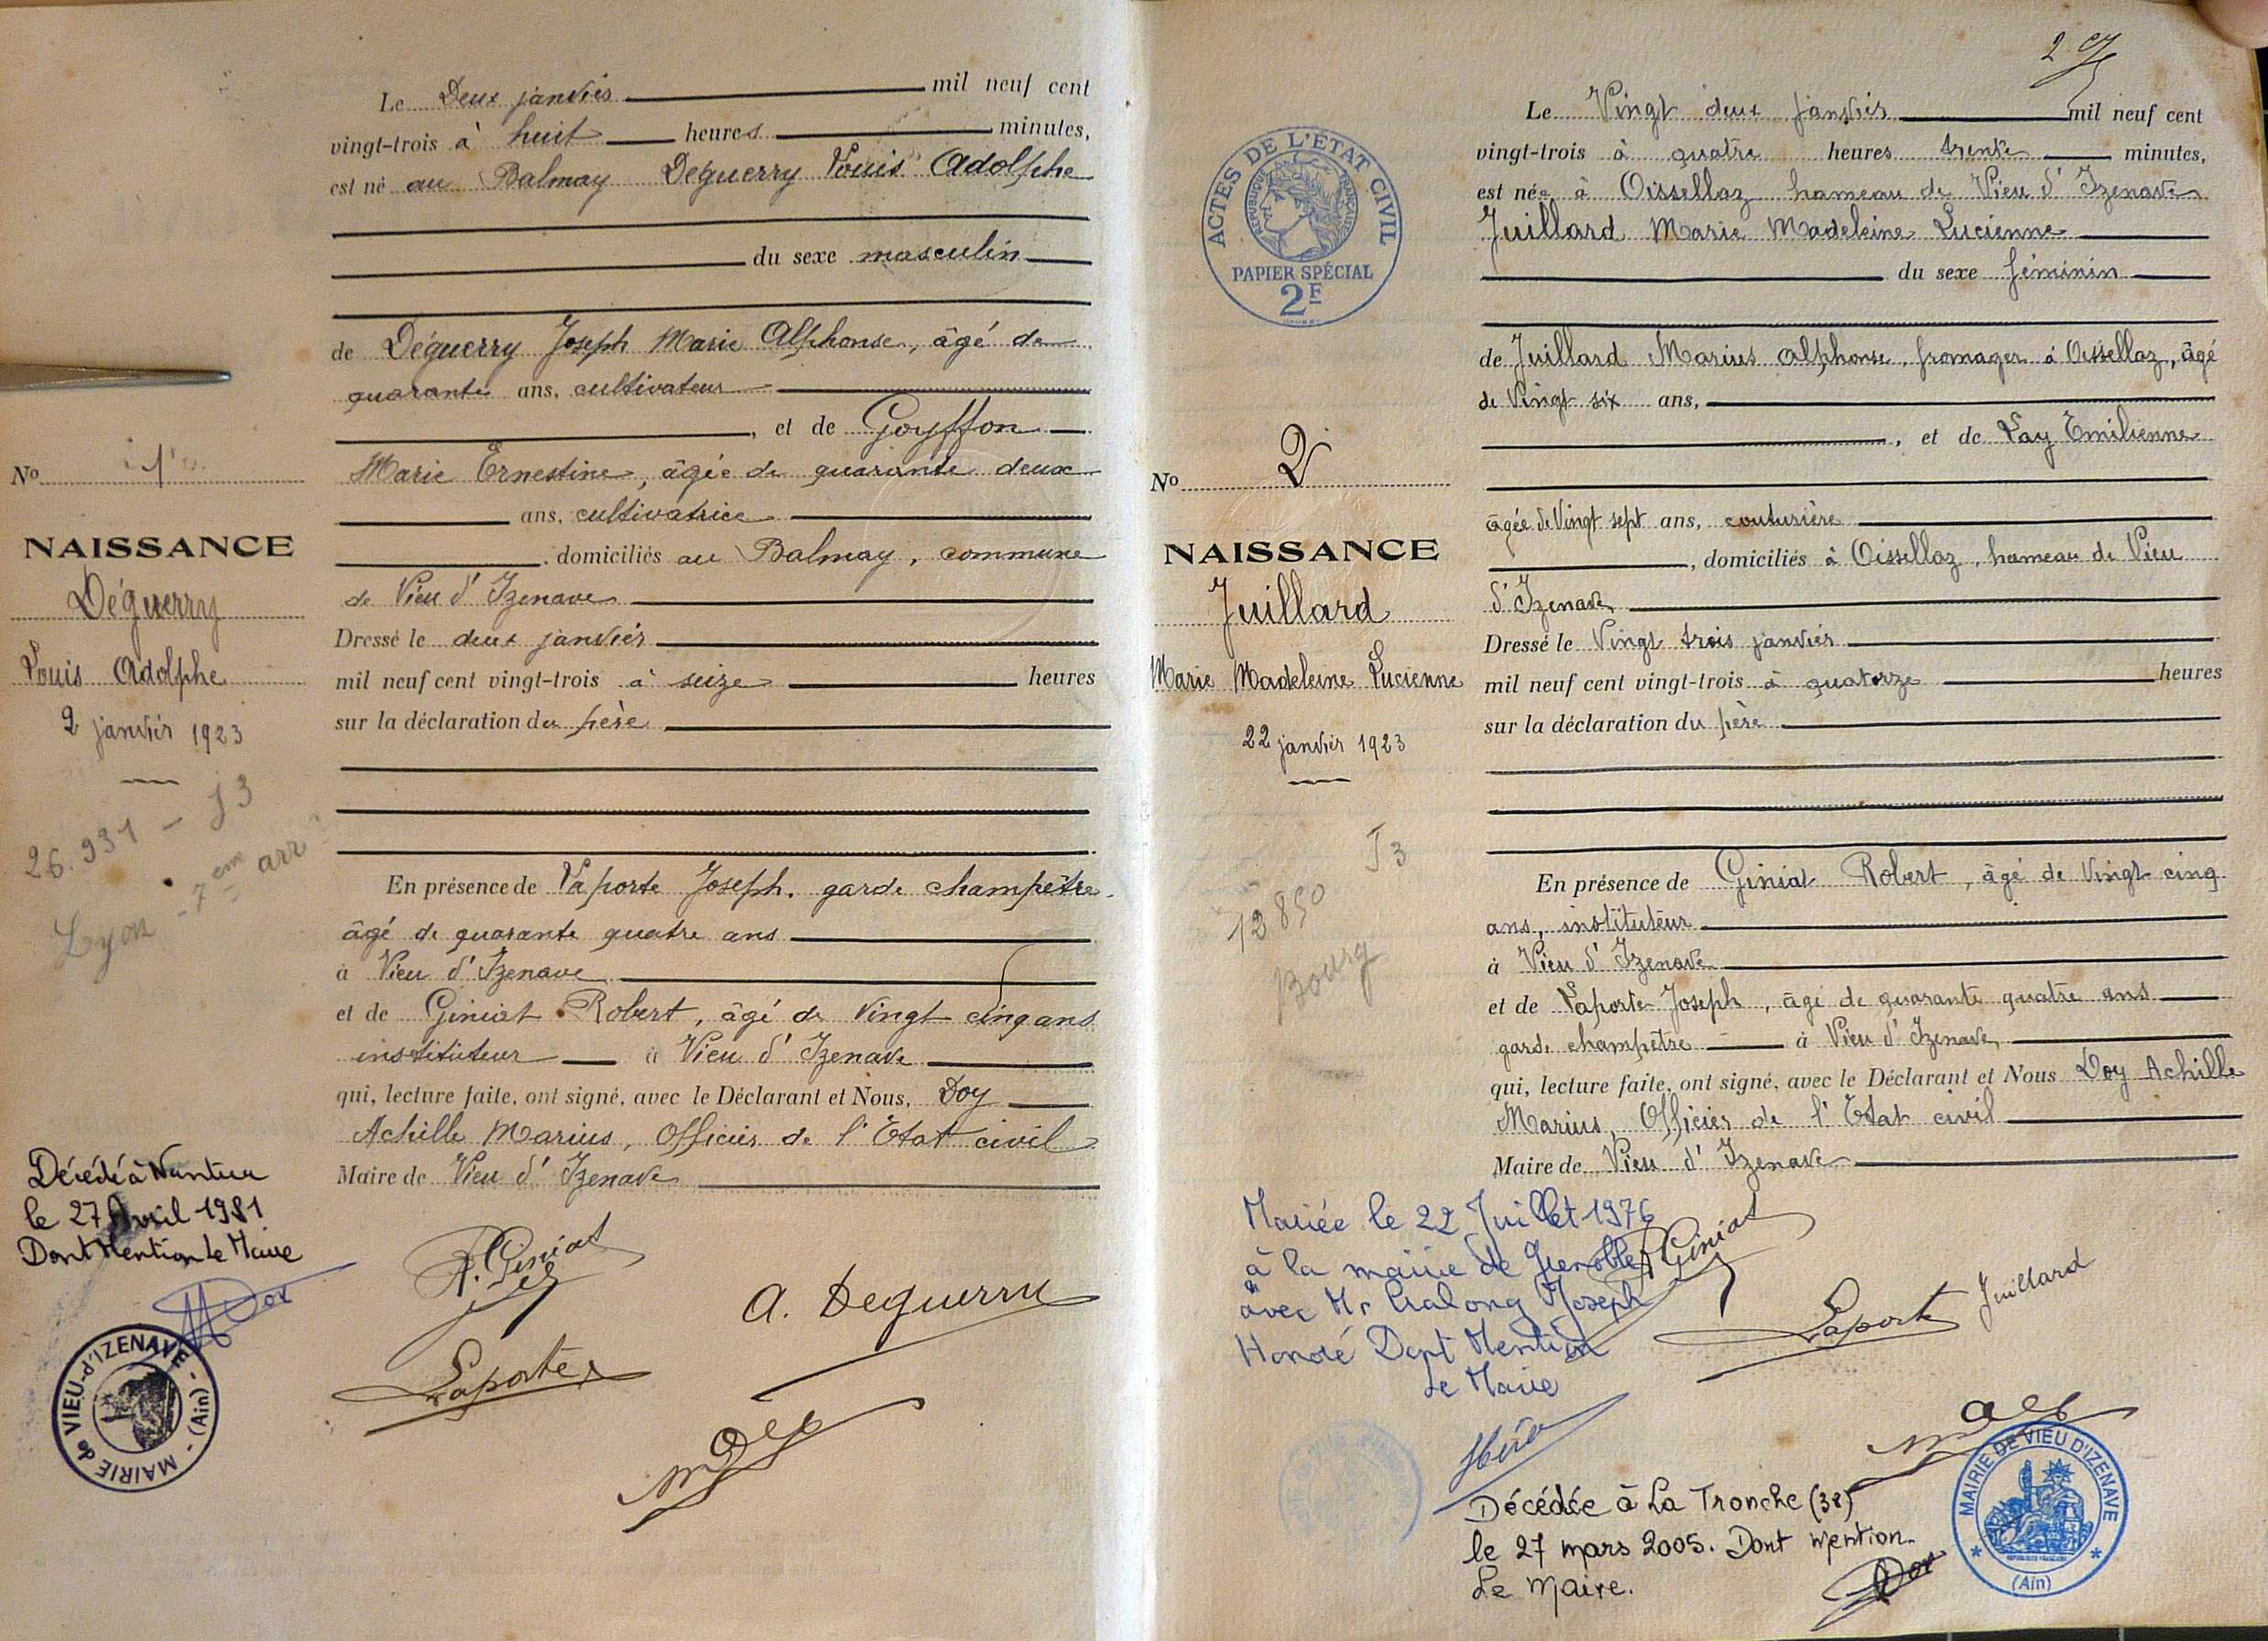 Le Deux janvier mil neuf cent
vingt-trois à huit heures minutes,
est né au Balmay Déguerry Louis Adolphe
du sexe masculin
de Déguerry Joseph Marie Alphonse, âgé de
quarante ans, cultivateur
, et de Goyffon
Marie Ernestine, âgée de quarante deux
ans, cultivatrice
, domiciliés au Balmay, commune
de Vieu d'Izenave
Dressé le deux janvier
mil neuf cent vingt-trois à seize heures
sur la déclaration du père
En présence de Laporte Joseph, garde champêtre
âgé de quarante quatre ans
à Vieu d'Izenave
et de Giniat Robert, âgé de vingt cinq ans
instituteur à Vieu d'Izenave
qui, lecture faite, ont signé, avec le Déclarant et Nous, Doy
Achille Marius, Officier de l'Etat civil
Maire de Vieu d'Izenave
R. Giniat
A. Deguerry
Laporte
No 1
NAISSANCE
Déguerry
Louis Adolphe
2 janvier 1923
26.931 - J3
Lyon - 7em arr
Décédé à Nantua
le 27 Avril 1981
Dont Mention Le Maire
MAIRIE de VIEU-d'IZENAVE - (Ain) -
2
Le Vingt deux janvier mil neuf cent
vingt-trois à quatre heures trente minutes,
est née à Oissellaz hameau de Vieu d'Izenave
Juillard Marie Madeleine Lucienne
du sexe féminin
de Juillard Marius Alphonse, fromager à Oissellaz, âgé
de Vingt six ans,
, et de Lay Emilienne
âgée de Vingt sept ans, couturière
, domiciliés à Oissellaz, hameau de Vieu
d'Izenave
Dressé le Vingt trois janvier
mil neuf cent vingt-trois à quatorze heures
sur la déclaration du père
En présence de Giniat Robert, âgé de vingt cinq
ans, instituteur
à Vieu d'Izenave
et de Laporte Joseph, âgé de quarante quatre ans
garde champêtre à Vieu d'Izenave
qui, lecture faite, ont signé, avec le Déclarant et Nous Doy Achille
Marius, Officier de l'Etat civil
Maire de Vieu d'Izenave
R Giniat
Laporte
Juillard
ACTES DE L'ÉTAT CIVIL
RÉPUBLIQUE FRANÇAISE
PAPIER SPÉCIAL
2F
No 2
NAISSANCE
Juillard
Marie Madeleine Lucienne
22 janvier 1923
J3
12850
Bourg
Mariée le 22 Juillet 1976
à la mairie de Grenoble
avec Mr Joseph
Honoré Dont Mention
Le Maire
Décédée à La Tronche (38)
le 27 mars 2005. Dont mention.
Le Maire.
MAIRIE DE VIEU D'IZENAVE
(Ain)